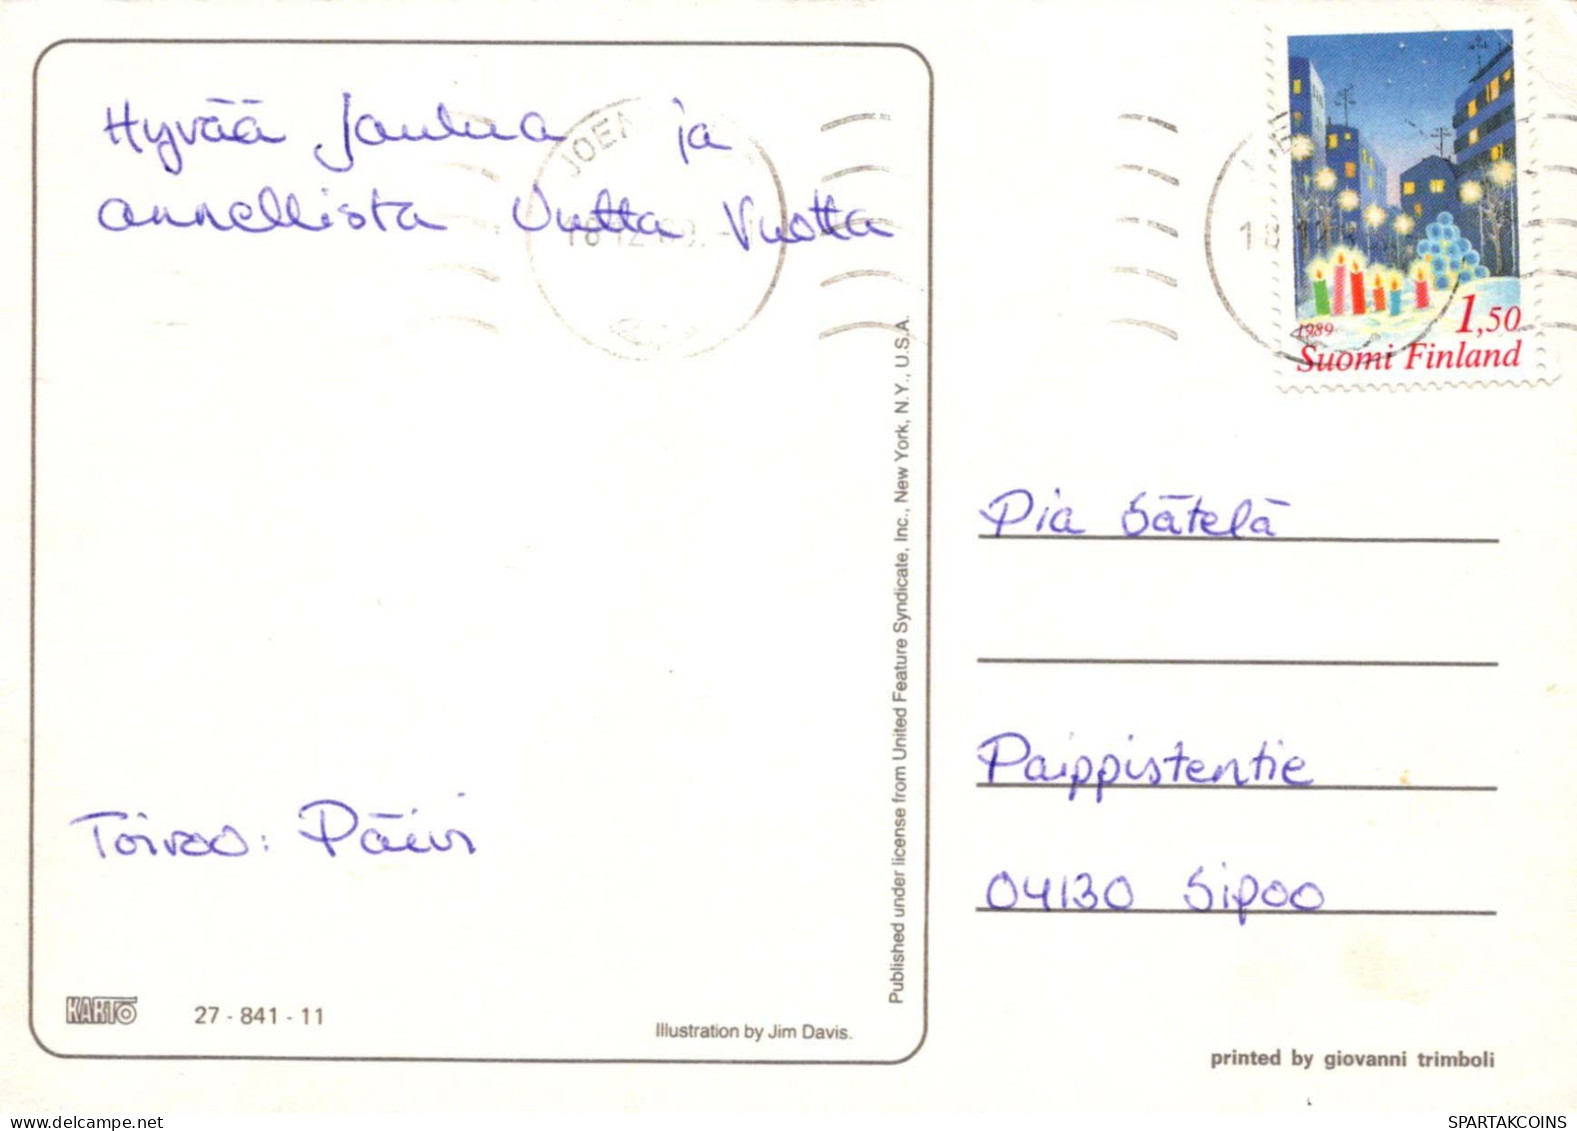 Hyvää Joulua ja
onnellista Uutta Vuotta
Toivoo: Päivi
KARTO
27 - 841 - 11
Illustration by Jim Davis.
Published under license from United Feature Syndicate, Inc., New York, N.Y., U.S.A.
1989
1,50
Suomi Finland
Pia Sätelä
Paippistentie
04130 Sipoo
printed by giovanni trimboli
SPARTAKCOINS